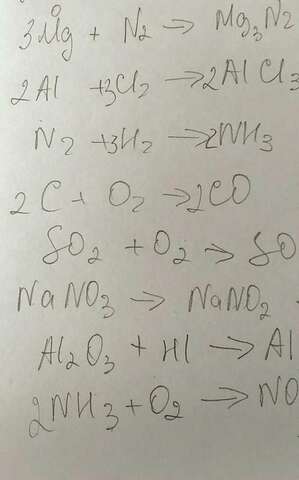 3Mg + N2 → Mg3N2
2Al +3Cl2 → 2AlCl3
N2 +3H2 → 2NH3
2C + O2 → 2CO
SO2 + O2 → SO
NaNO3 → NaNO2
Al2O3 + Hl → Al
2NH3 + O2 → NO